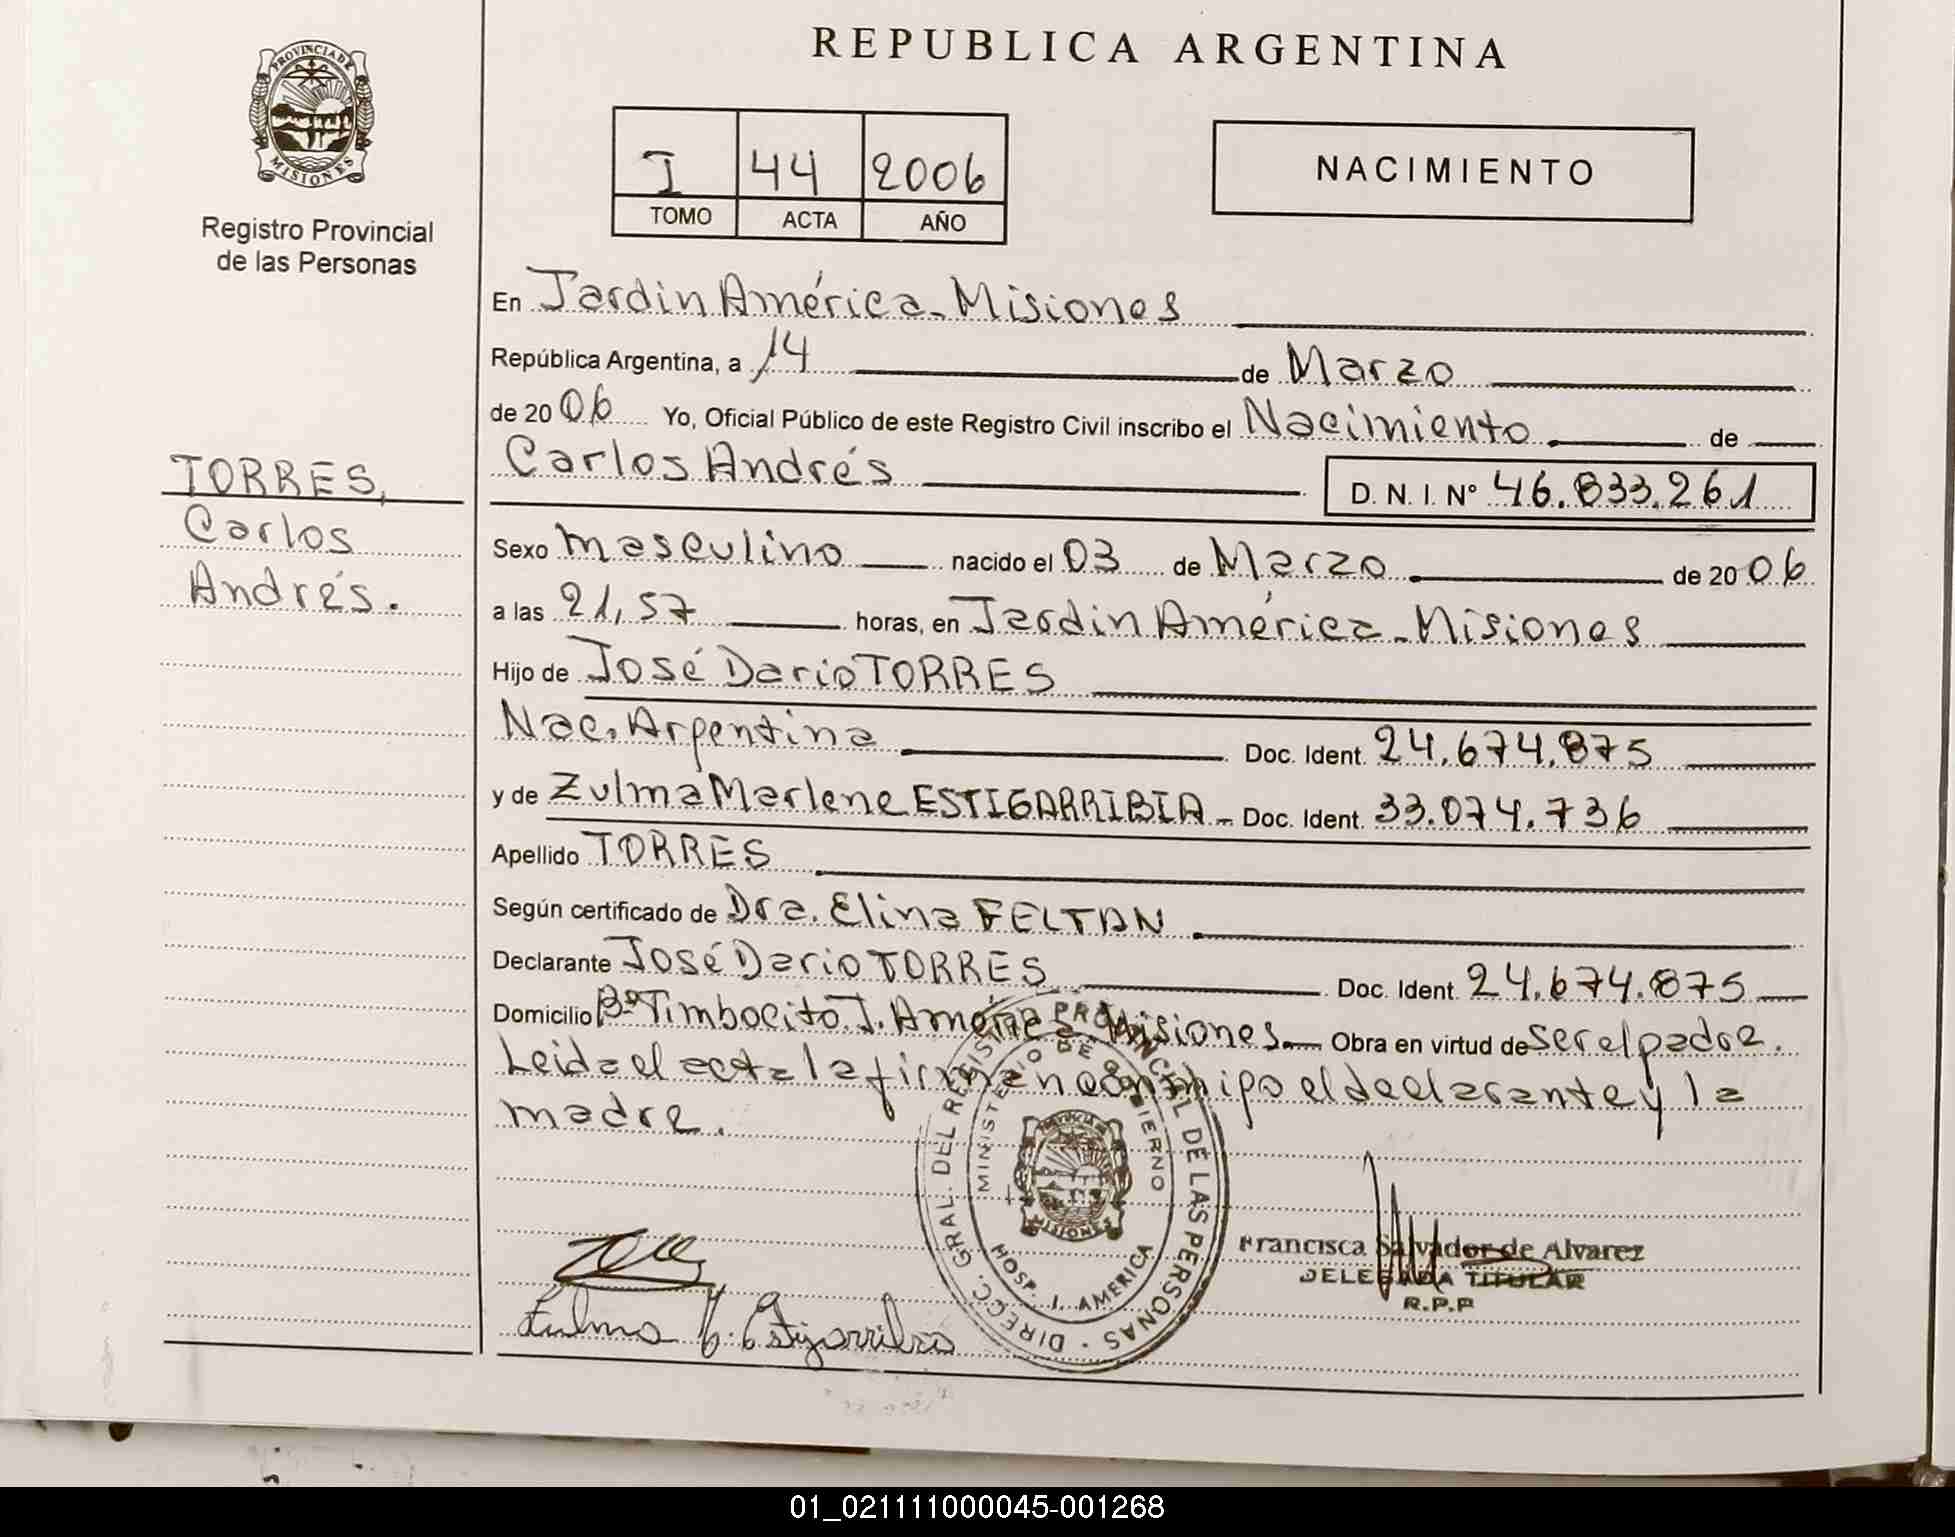 REPUBLICA ARGENTINA
PROVINCIA DE
MISIONES
Registro Provincial
de las Personas
I 44 2006
TOMO ACTA AÑO
NACIMIENTO
En Jardin América - Misiones
República Argentina, a 14 de Marzo
de 2006 Yo, Oficial Público de este Registro Civil inscribo el Nacimiento de
Carlos Andrés D. N. I. Nº 46.833.261
TORRES,
Carlos
Andrés.
Sexo masculino nacido el 03 de Marzo de 2006
a las 21,57 horas, en Jardin América - Misiones
Hijo de José Dario TORRES
Nac. Argentina Doc. Ident. 24.674.875
y de Zulma Marlene ESTIGARRIBIA - Doc. Ident. 33.074.736
Apellido TORRES
Según certificado de Dra. Elina FELTAN
Declarante José Dario TORRES Doc. Ident. 24.674.875
Domicilio Bº Timbocito J. América - Misiones - Obra en virtud de ser el padre.
Leida el acta la firman conmigo el declarante y la
madre.
DIRECC. GRAL. DEL REGISTRO PROVINCIAL DE LAS PERSONAS
MINISTERIO DE GOBIERNO
MISIONES
HOSP. J. AMERICA
Francisca Salvador de Alvarez
DELEGADA TITULAR
R.P.P
Zulma M. Estigarribia
01_021111000045-001268